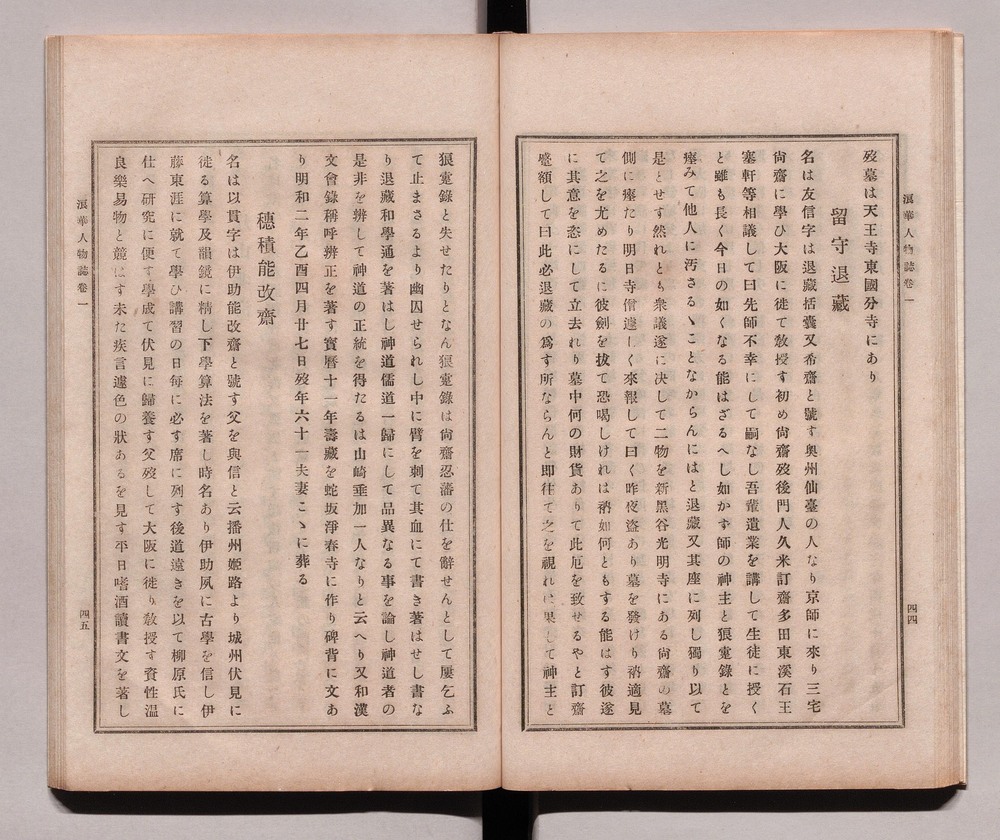 浪華人物誌卷一
四四
歿墓は天王寺東國分寺にあり
留守退藏
名は友信字は退藏括囊又希齋と號す奧州仙臺の人なり京師に來り三宅
尙齋に學ひ大阪に徙て敎授す初め尙齋歿後門人久米訂齋多田東溪石王
塞軒等相議して曰先師不幸にして嗣なし吾輩遺業を講して生徒に授く
と雖も長く今日の如くなる能はざるへし如かず師の神主と狼疐錄とを
瘞みて他人に汚さるゝことなからんにはと退藏又其座に列し獨り以て
是とせす然れとも衆議遂に決して二物を新黑谷光明寺にある尙齋の墓
側に瘞たり明日寺僧遽しく來報して曰く昨夜盜あり墓を發けり衲適見
て之を尤めたるに彼劍を拔て恐喝しけれは衲如何ともする能はす彼遂
に其意を恣にして立去れり墓中何の財貨ありて此厄を致せるやと訂齋
蹙額して曰此必退藏の爲す所ならんと即往て之を視れは果して神主と
狼疐錄と失せたりとなん狼疐錄は尙齋忍藩の仕を辭せんとして屢乞ふ
て止まさるより幽囚せられし中に臂を刺て其血にて書き著はせし書な
り退藏和學通を著はし神道儒道一歸にして品異なる事を論し神道者の
是非を辨して神道の正統を得たるは山崎垂加一人なりと云へり又和漢
文會錄稱呼辨正を著す寶曆十一年壽藏を蛇坂淨春寺に作り碑背に文あ
り明和二年乙酉四月廿七日歿年六十一夫妻こゝに葬る
穗積能改齋
名は以貫字は伊助能改齋と號す父を與信と云播州姬路より城州伏見に
徙る算學及韻鏡に精し下學算法を著し時名あり伊助夙に古學を信し伊
藤東涯に就て學ひ講習の日每に必す席に列す後道遠きを以て柳原氏に
仕へ硏究に便す學成て伏見に歸養す父歿して大阪に徙り敎授す資性溫
良樂易物と競はす未た疾言遽色の狀あるを見す平日嗜酒讀書文を著し
浪華人物誌卷一
四五